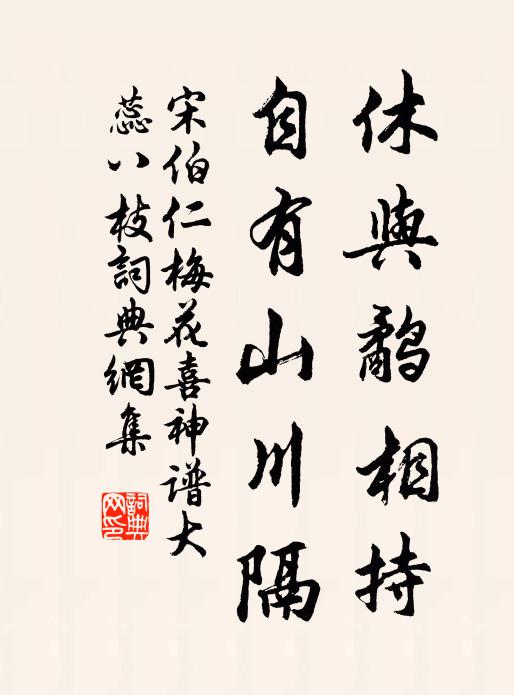 休與鷸相持
自有山川隔
宋伯仁梅花喜神谱大
蕊八枝詞典網集
詞典
网印